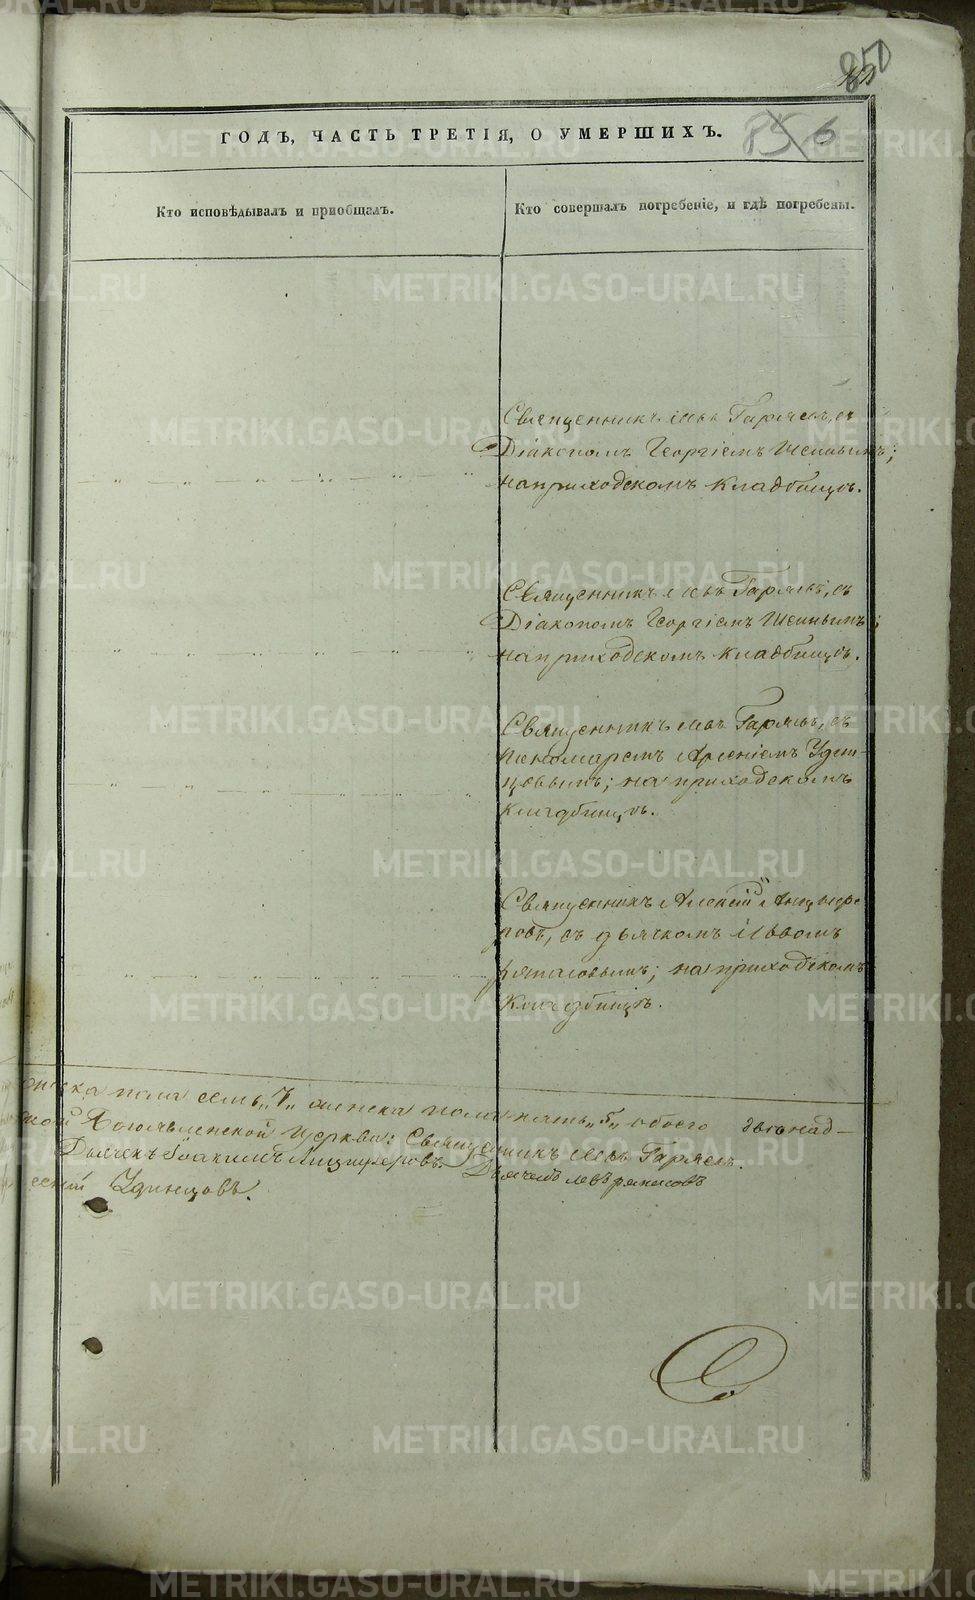 850
ГОДЪ, ЧАСТЬ ТРЕТІЯ, О УМЕРШИХЪ.
856
Кто исповѣдывалъ и приобщалъ.
Кто совершалъ погребеніе, и гдѣ погребены.
Священникъ Левъ Гаряевъ, съ
Діакономъ Георгіемъ
на приходскомъ кладбищѣ.
Священникъ Левъ Гаряевъ, съ
Діакономъ Георгіемъ
на приходскомъ кладбищѣ.
Священникъ Левъ Гаряевъ, съ
пономаремъ Арсеніемъ Удин-
цовымъ; на приходскомъ
кладбищѣ.
Священникъ Алексій Анциферовъ
ровъ, съ дьячкомъ Львомъ
на приходскомъ
кладбищѣ.
пола семь „7“ женска пола пять „5“ обоего двѣнад-
Богоявленской церкви: Священникъ Левъ Гаряевъ.
Дьячекъ Іоакимъ Анциферовъ. Дьячекъ Левъ
Удинцовъ.
METRIKI.GASO-URAL.RU